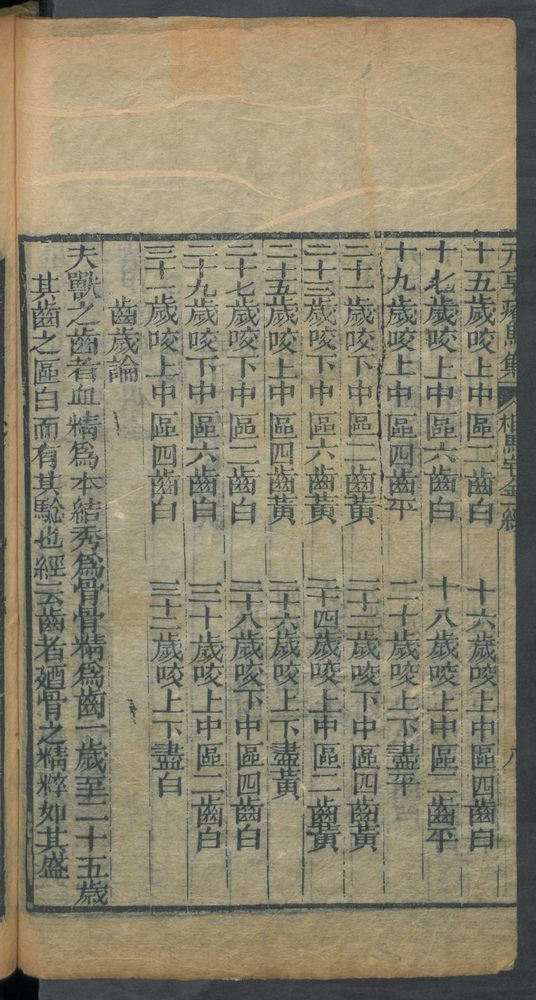 元亨療馬集 相馬寶金經 八
十五歲咬上中區二齒白 十六歲咬上中區四齒白
十七歲咬上中區六齒白 十八歲咬上中區二齒平
十九歲咬上中區四齒平 二十歲咬上下盡平
二十一歲咬下中區二齒黃 二十二歲咬下中區四齒黃
二十三歲咬下中區六齒黃 二十四歲咬上中區二齒黃
二十五歲咬上中區四齒黃 二十六歲咬上下盡黃
二十七歲咬下中區二齒白 二十八歲咬下中區四齒白
二十九歲咬下中區六齒白 三十歲咬上中區二齒白
三十一歲咬上中區四齒白 三十二歲咬上下盡白
齒歲論
夫獸之齒者血精爲本結秀爲骨骨精爲齒一歲至二十五歲
其齒之區白而有其騐也經云齒者廼骨之精粹如其盛